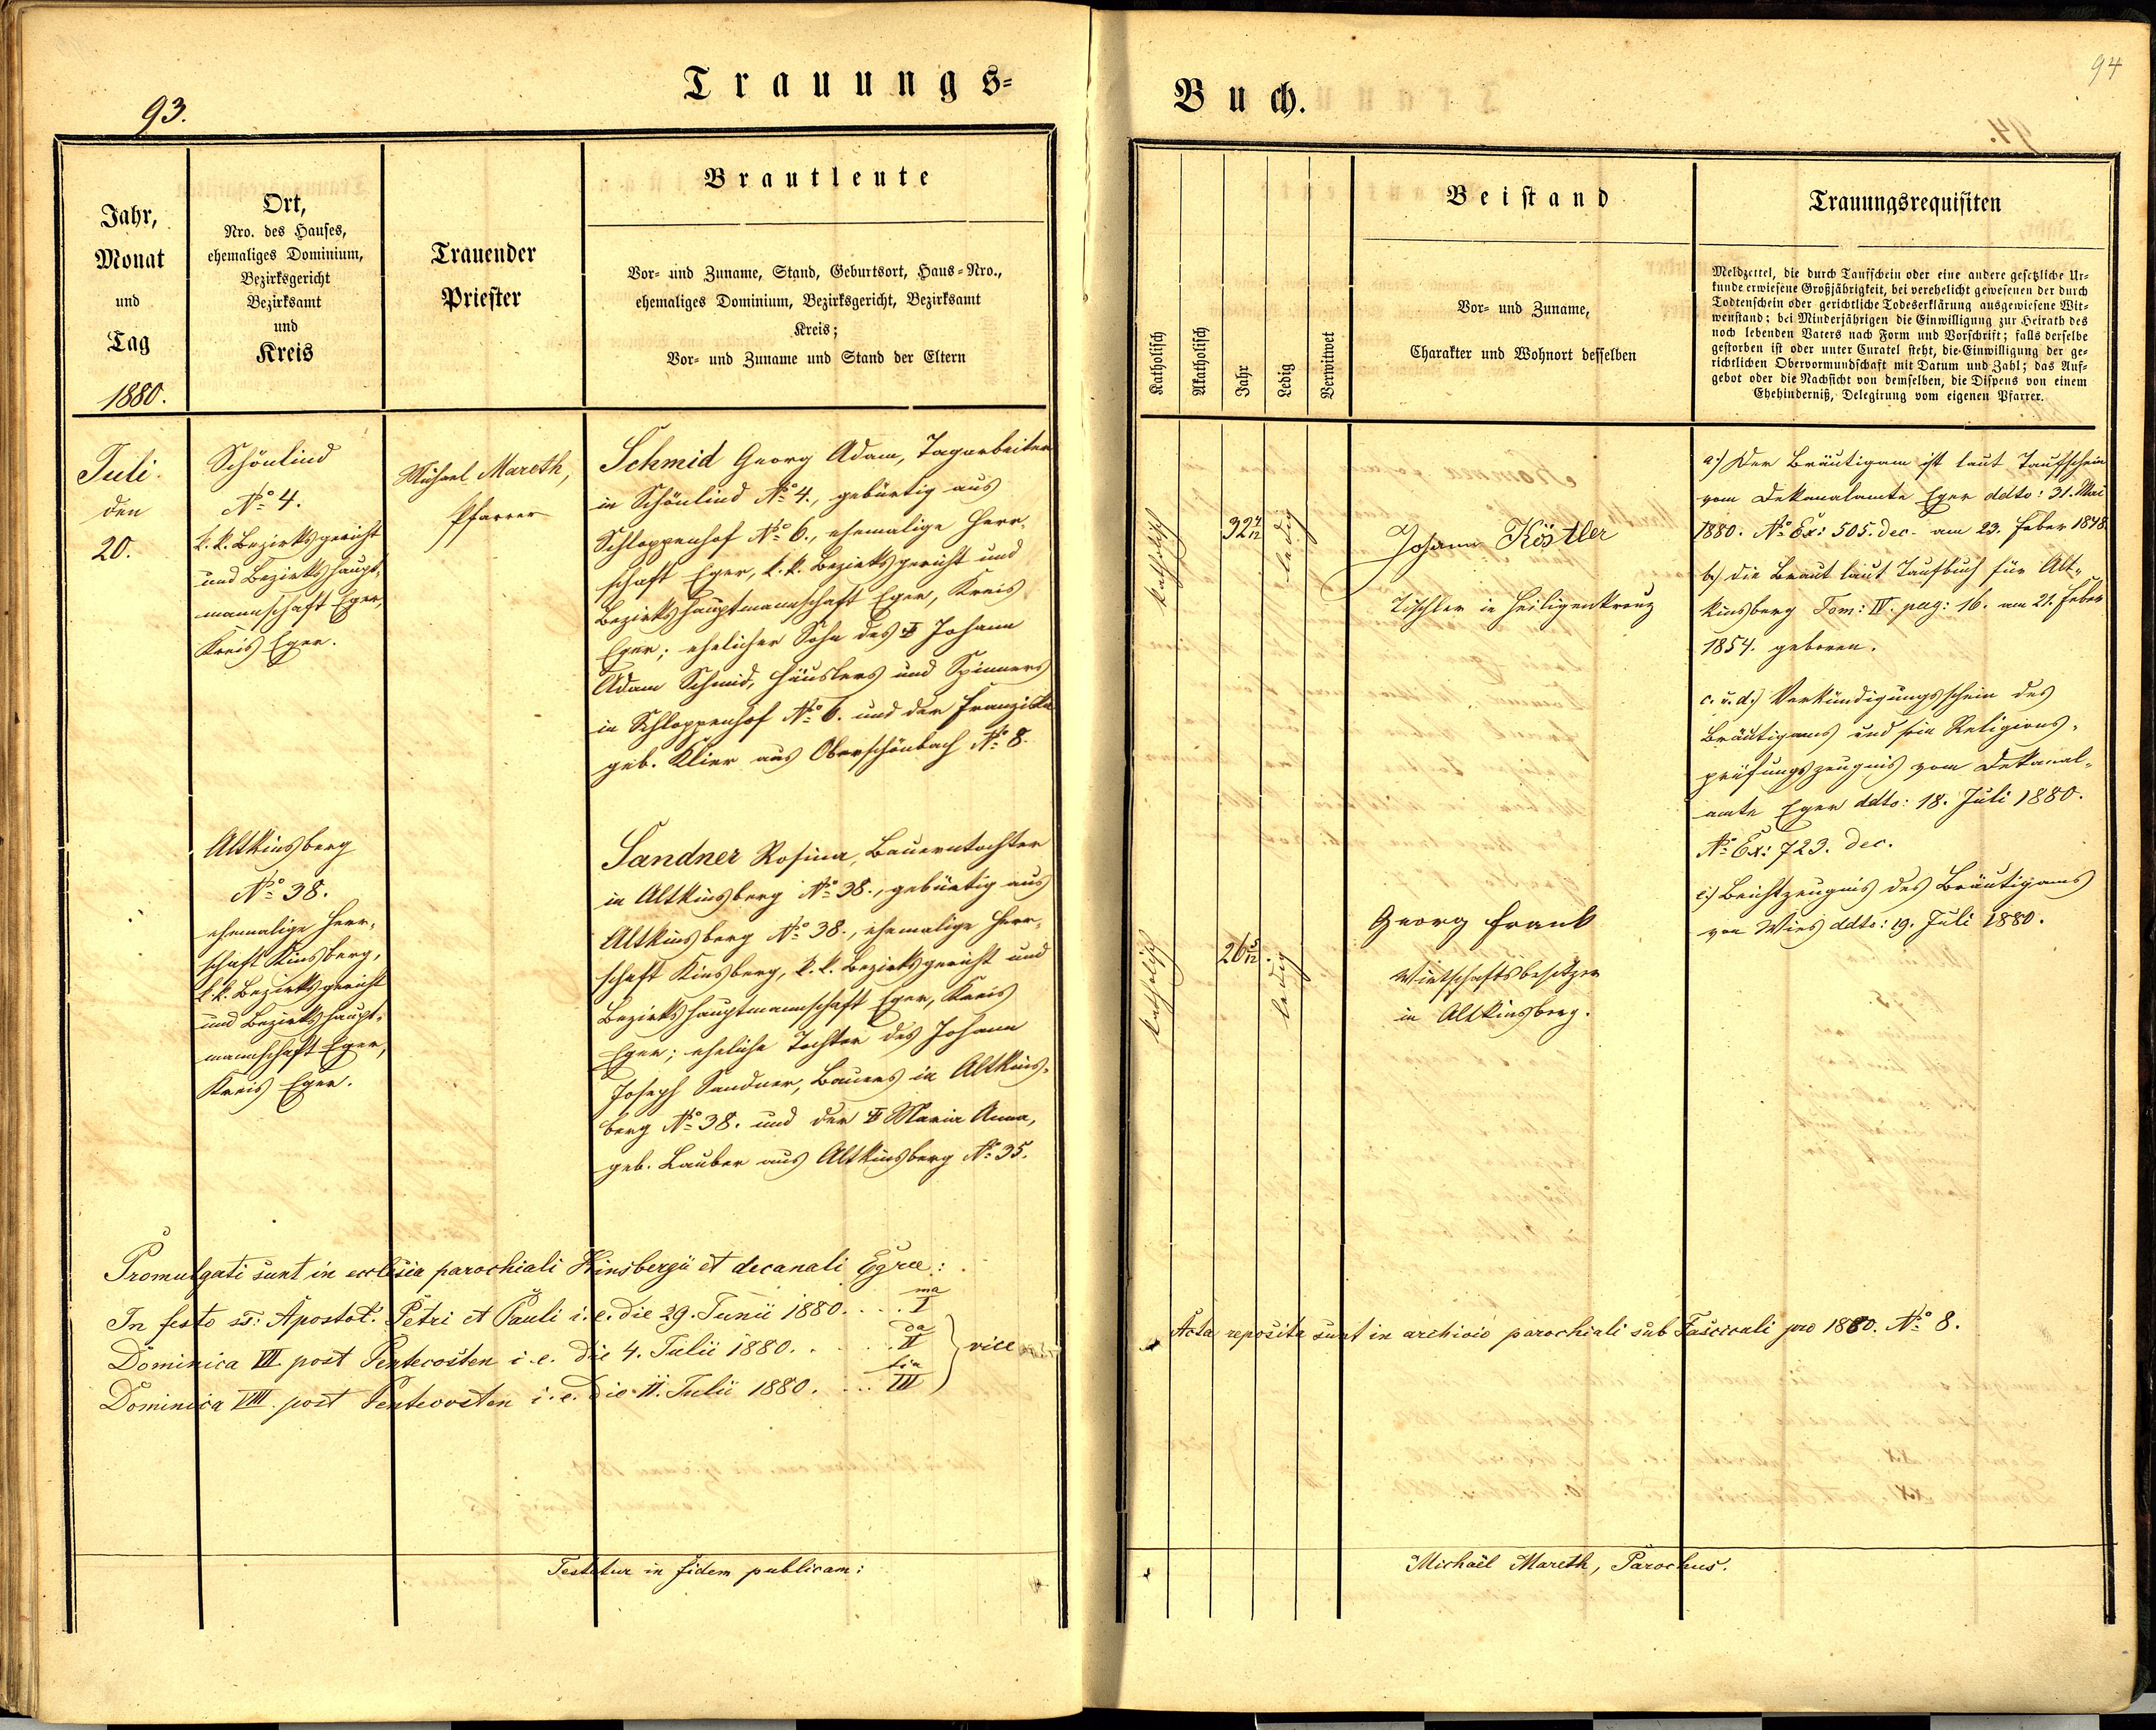 93.
Trauungs-
Jahr,
Monat
und
Tag
1880.
Ort,
Nro. des Hauses,
ehemaliges Dominium,
Bezirksgericht
Bezirksamt
und
Kreis
Trauender
Priester
Brautleute
Vor- und Zuname, Stand, Geburtsort, Haus-Nro.,
ehemaliges Dominium, Bezirksgericht, Bezirksamt
Kreis;
Vor- und Zuname und Stand der Eltern
Juli.
den
20.
Schönlind
No 4.
k. k. Bezirksgericht
und Bezirkshaupt-
mannschaft Eger,
Kreis Eger.
Michael Mareth,
Pfarrer
Schmid Georg Adam, Tagarbeiter
in Schönlind No 4., gebürtig aus
Schloppenhof No 6., ehemalige Herr-
schaft Eger, k. k. Bezirksgericht und
Bezirkshauptmannschaft Eger, Kreis
Eger; ehelicher Sohn des Johann
Adam Schmid, Häuslers und Spinners
in Schloppenhof No 6. und der Franziska
geb. Klier aus Oberschönbach No 8.
Altkinsberg
No 38.
ehemalige Herr-
schaft Kinsberg,
k. k. Bezirksgericht
und Bezirkshaupt-
mannschaft Eger,
Kreis Eger.
Sandner Rosina, Bauerntochter
in Altkinsberg No 38., gebürtig aus
Altkinsberg No 38., ehemalige Herr-
schaft Kinsberg, k. k. Bezirksgericht und
Bezirkshauptmannschaft Eger, Kreis
Eger; eheliche Tochter des Johann
Joseph Sandner, Bauers in Altkins-
berg No 38. und der Maria Anna,
geb. Lauber aus Altkinsberg No 35.
Promulgati sunt in ecclesia parochiali Kinsbergii et decanali Egrae:
In festo ss: Apostol. Petri et Pauli i. e. die 29. Junii 1880. . . . I ma
Dominica VII post Pentecosten i. e. die 4. Julii 1880. . . . . II da } vice
Dominica VIII. post Pentecosten i. e. die 11. Julii 1880. . . . III tia
Testetur in fidem publicam:
94
Buch.
Katholisch
Akatholisch
Jahr
Ledig
Verwitwet
Beistand
Vor- und Zuname,
Charakter und Wohnort desselben
Trauungsrequisiten
Meldzettel, die durch Taufschein oder eine andere gesetzliche Ur-
kunde erwiesene Großjährigkeit, bei verehelicht gewesenen der durch
Todtenschein oder gerichtliche Todeserklärung ausgewiesene Wit-
wenstand; bei Minderjährigen die Einwilligung zur Heirath des
noch lebenden Vaters nach Form und Vorschrift; falls derselbe
gestorben ist oder unter Curatel steht, die Einwilligung der ge-
richtlichen Obervormundschaft mit Datum und Zahl; das Auf-
gebot oder die Nachsicht von demselben, die Dispens von einem
Ehehinderniß, Delegirung vom eigenen Pfarrer.
katholisch
32 4/12
ledig
Johann Köstler
Tischler in Heiligenkreuz
katholisch
26 5/12.
ledig
Georg Frank
Wirtschaftsbesitzer
in Altkinsberg.
a.) Der Bräutigam ist laut Taufschein
vom Dekanalamte Eger ddto: 31. Mai
1880. No Ex: 505. dec. am 23. Feber 1848.
b.) die Braut laut Taufbuch für Alt-
kinsberg Tom: IV. pag: 16. am 21. Feber
1854. geboren.
c. u. d.) Verkündigungsschein des
Bräutigams und sein Religions-
prüfungszeugnis vom Dekanal-
amte Eger ddto: 18. Juli 1880.
No Ex: 723. dec.
e.) Beichtzeugnis des Bräutigams
von Wies ddto: 19. Juli 1880.
Acta reposita sunt in archivio parochiali sub Fascicali pro 1880. No 8.
Michaël Mareth, Parochus.